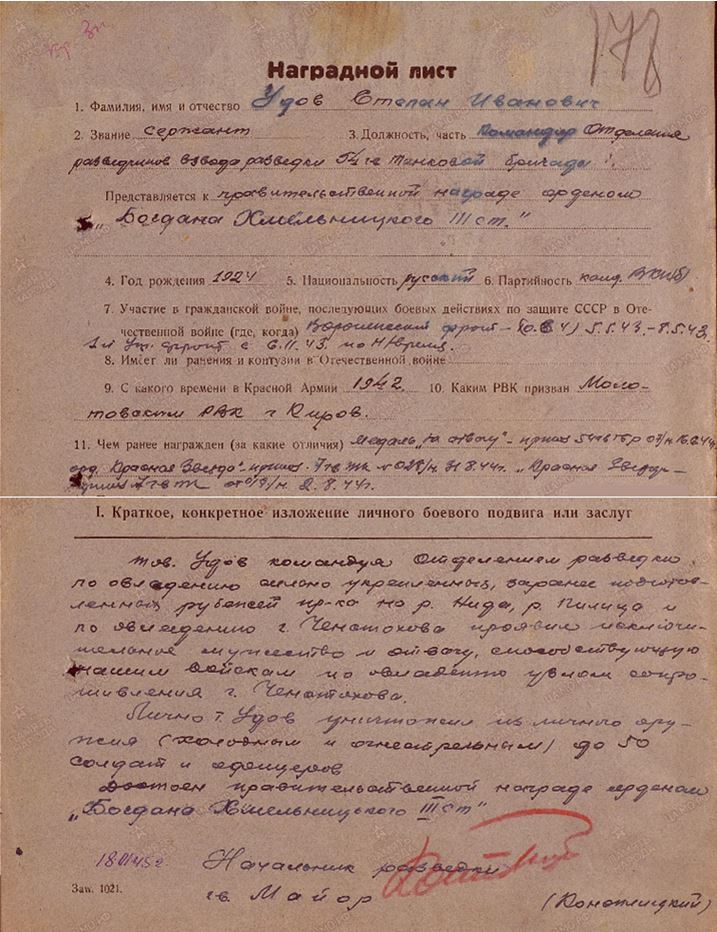 пр. 3п
178
Наградной лист
1. Фамилия, имя и отчество Удов Степан Иванович
2. Звание сержант 3. Должность, часть Командир Отделения
разведчиков взвода разведки 54 гв танковой бригады
Представляется к правительственной награде орденом
„Богдана Хмельницкого III ст."
4. Год рождения 1924 5. Национальность русский 6. Партийность канд. ВКП(б)
7. Участие в гражданской войне, последующих боевых действиях по защите СССР в Оте-
чественной войне (где, когда) Воронежский фронт – 5.5.43.–8.5.43.
1-й Ук. фронт с 6.11.43. по н/время.
8. Имеет ли ранения и контузии в Отечественной войне
9. С какого времени в Красной Армии 1942 10. Каким РВК призван Моло-
товским РВК г Киров.
11. Чем ранее награжден (за какие отличия) Медаль „За отвагу" – приказ 54 гв тбр
орд. „Красная Звезда" – приказ 7 гв ТК 31.8.44г. „Красная Звезда" –
приказ 7 гв ТК 2.8.44г.
I. Краткое, конкретное изложение личного боевого подвига или заслуг
тов. Удов командуя Отделением разведки
по овладению сильно укрепленных, заранее подготов-
ленных рубежей пр-ка на р. Нида, р. Пилица и
по овладению г. Ченстохова проявил исключи-
тельное мужество и отвагу, способствующую
нашим войскам по овладению узлом сопро-
тивления г. Ченстохова.
Лично т. Удов уничтожил из личного ору-
жия (холодным и огнестрельным) до 50
солдат и офицеров
Достоен правительственной награде орденом
„Богдана Хмельницкого III ст"
Начальник разведки
гв. Майор (Конотпицкий)
Заw. 1021.